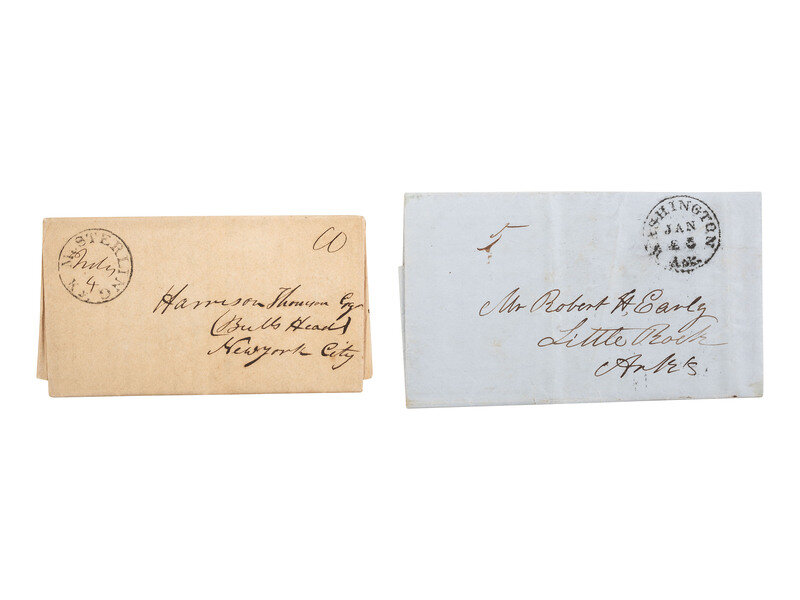 MT STERLING KY
July
4
10
Harrison Thomson Esqr
(Bulls Head)
Newyork City
WASHINGTON
JAN
25
Ark.
5
Mr Robert H. Early
Little Rock
Arks